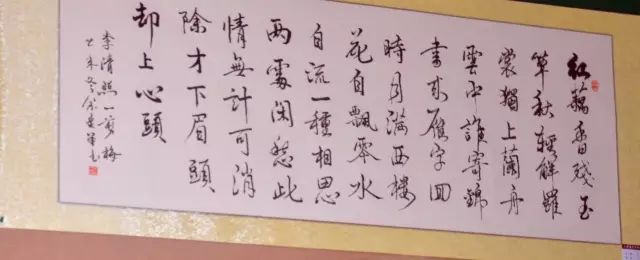 紅藕香殘玉
簟秋輕解羅
裳獨上蘭舟
雲中誰寄錦
書來雁字回
時月滿西樓
花自飄零水
自流一種相思
兩處閑愁此
情無計可消
除才下眉頭
却上心頭
李清照一剪梅